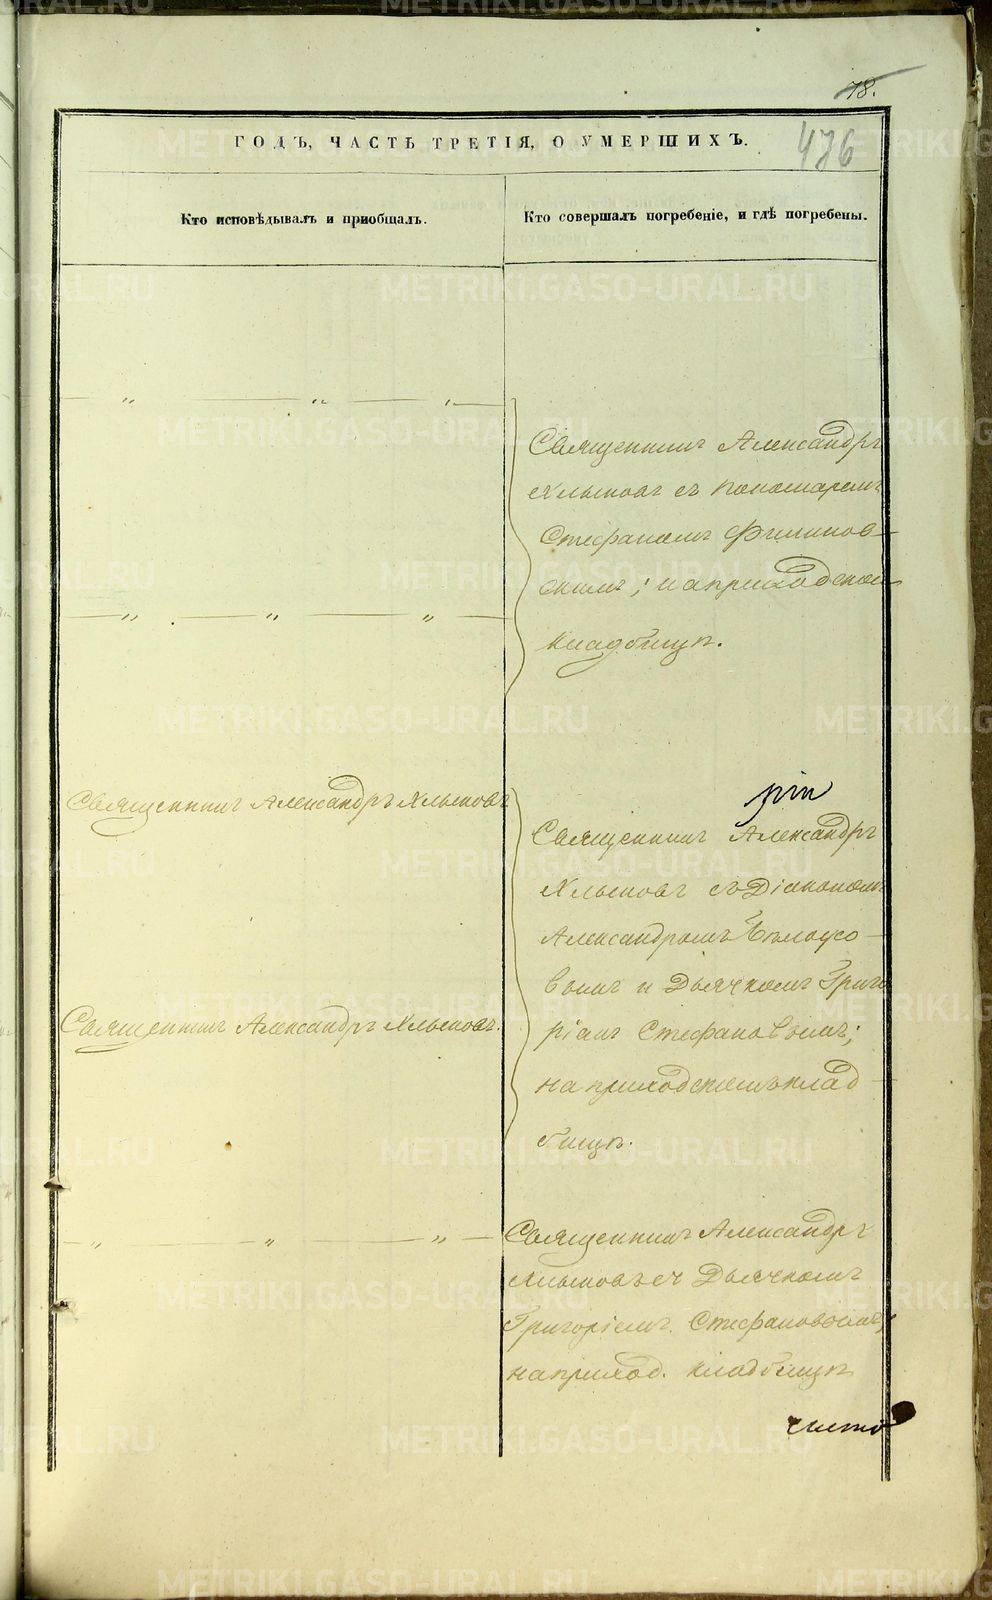 78.
476
ГОДЪ, ЧАСТЬ ТРЕТІЯ, О УМЕРШИХЪ.
Кто исповѣдывалъ и приобщалъ.
Кто совершалъ погребеніе, и гдѣ погребены.
— „ — „ — „ —
Священникъ Александръ
Хлыновъ съ Пономаремъ
Стефаномъ Филипов-
скимъ; на приходскомъ
кладбищѣ.
— „ — „ — „ —
Священникъ Александръ Хлыновъ
Священникъ Александръ
Хлыновъ съ Діакономъ
Александромъ Бѣлоусо-
вымъ и Дьячкомъ Григо
ріемъ Стефановымъ;
на приходскомъ клад-
бищѣ.
Священникъ Александръ Хлыновъ.
— „ — „ — „ —
Священникъ Александръ
Хлыновъ съ Дьячкомъ
Григоріемъ Стефановымъ;
на приход. кладбищѣ
METRIKI.GASO-URAL.RU